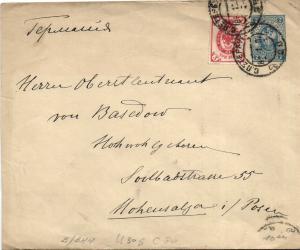 Германия
Herrn Oberstleutnant
von Basedow
Hochwohlgeboren
Soolbadstrasse 55
Hohensalza i/Posen